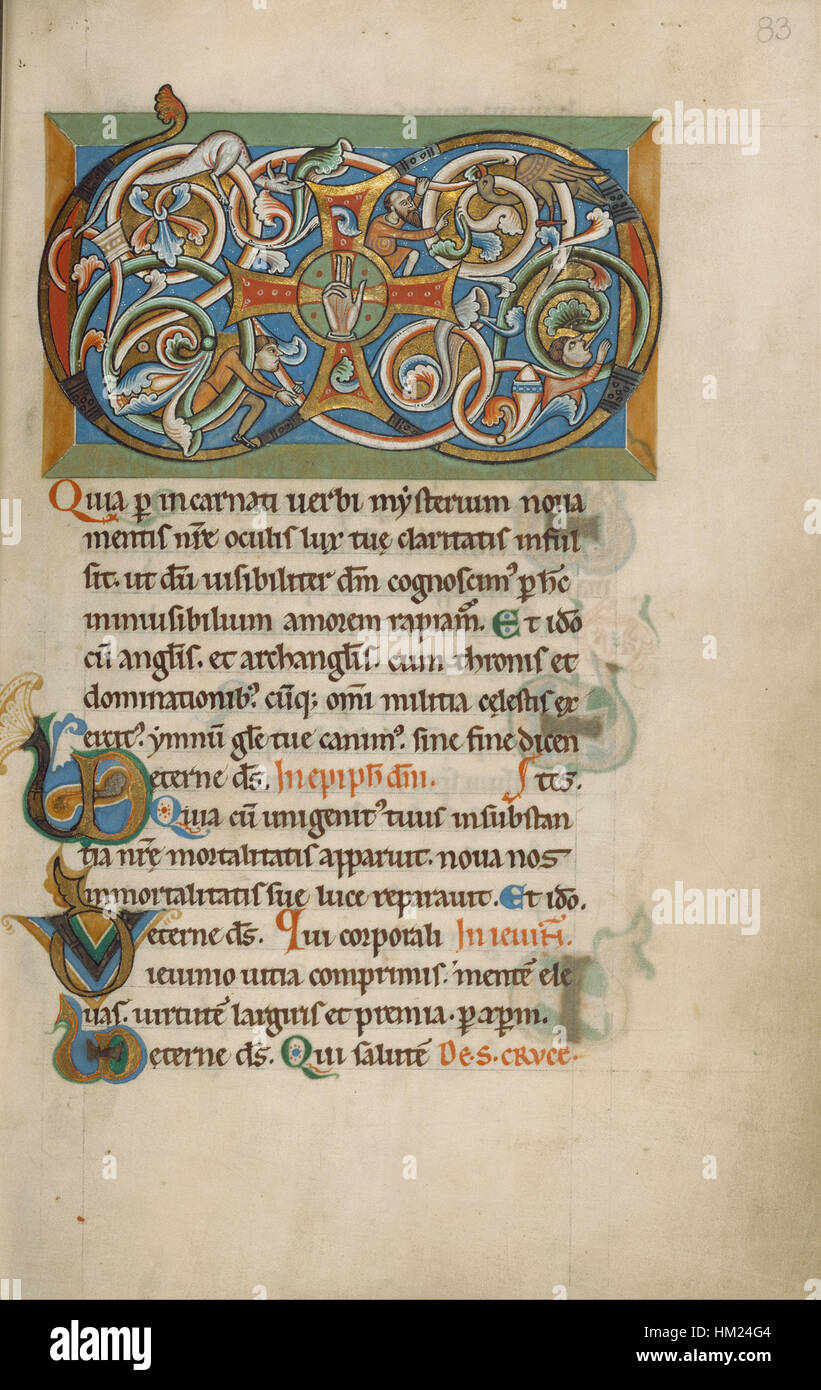 83
Quia p̄ incarnati uerbi mẏsterium noua
mentis nr̄e oculis lux tuę claritatis inful
sit. ut dū uisibiliter dm̄ cognoscim᾽ p̄ hc̄
inuisibilium amorem rapiam᾽. Et ido
cū angl̄is. et archangl̄is. cum thronis et
dominationib᾽. cūq; omī militia cęlestis ex
ercit᾽. ẏmnū gl̄e tue canim᾽. sine fine dicen
eterne ds̄. In epiph̄ dn̄i. Stes.
Quia cū unigenit᾽ tuus insubstan
tia nr̄ę mortalitatis apparuit. noua nos
inmortalitatis sue luce reparauit. Et ido.
eterne ds̄. Qui corporali In ieiun̄.
ieiunio uitia comprimis. mentē ele
uas. uirtutē largiris et premia. p̄ xp̄m.
eterne ds̄. Qui salutē De. S. Cruce.
alamy
alamy
alamy
a
a
a
a
alamy
Image ID: HM24G4
www.alamy.com